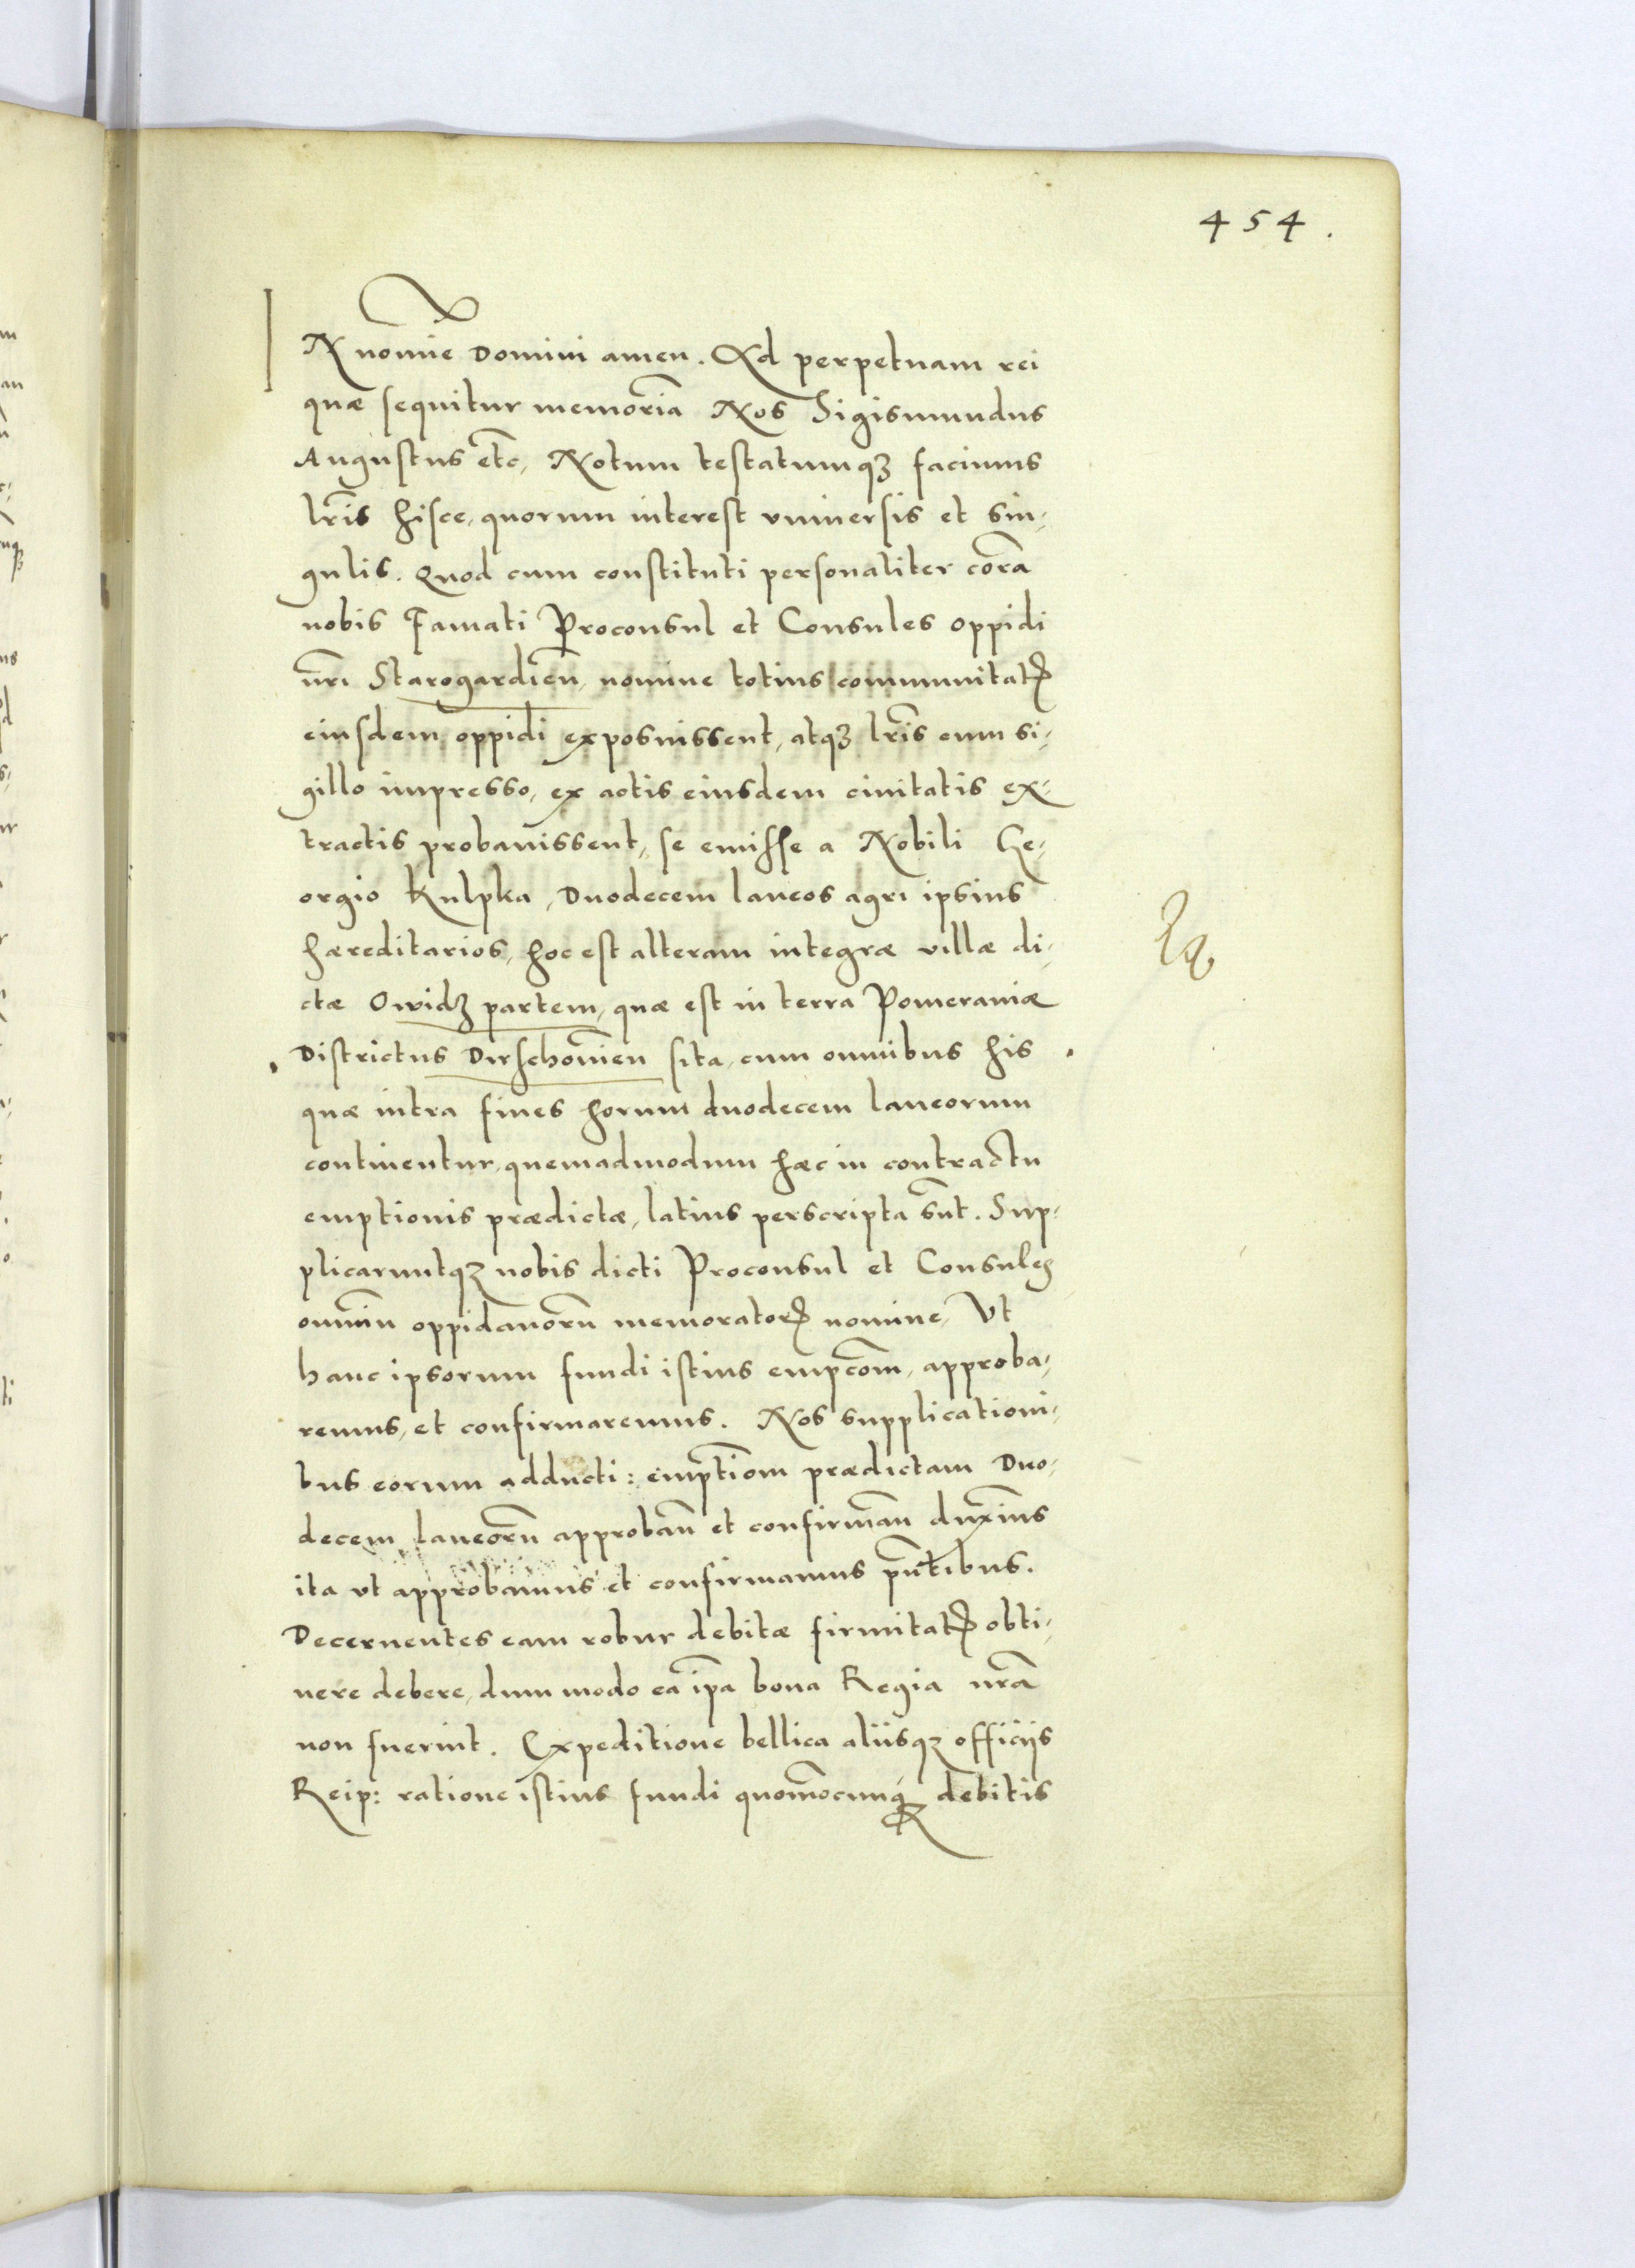 454.
IN nomine Domini amen. Ad perpetuam rei
quæ sequitur memoriã Nos Sigismundus
Augustus etc̃, Notum testatumqȝ facimus
lr̃is hisce, quorum interest vniuersis et sin-
gulis. Quod cum constituti personaliter corã
nobis Famati Proconsul et Consules oppidi
nr̃i Starogardien̄, nomine totius communitatꝭ
eiusdem oppidi exposuissent, atqȝ lr̃is cum si-
gillo impresso, ex actis eiusdem ciuitatis ex-
tractis probauissent, se emisse a Nobili Ge-
orgio Kulpka, Duodecem laneos agri ipsius
hæreditarios, hoc est alteram integræ villæ di-
ctæ Owidȝ partem, quæ est in terra Pomeraniæ
Districtus Dirschouien̄ sita, cum omnibus his
quæ intra fines horum duodecem laneorum
continentur, quemadmodum hæc in contractu
emptionis prædictæ, latius perscripta sũt. Sup-
plicaruntqȝ nobis dicti Proconsul et Consules
omniũ oppidanorũ memoratorꝭ nomine, Vt
hanc ipsorum fundi istius empc̃om, approba-
remus, et confirmaremus. Nos supplicationi-
bus eorum adducti: empt̃iom prædictam Duo-
decem laneorũ approbañ et confirmañ duximus
ita vt approbamus et confirmamus pñtibus.
Decernentes eam robur debitæ firmitatꝭ obti-
nere debere, dum modo ea ip̃a bona Regia nrã
non fuerint. Expeditione bellica aliisqȝ officijs
Reip: ratione istius fundi quomõcunqȝ debitis